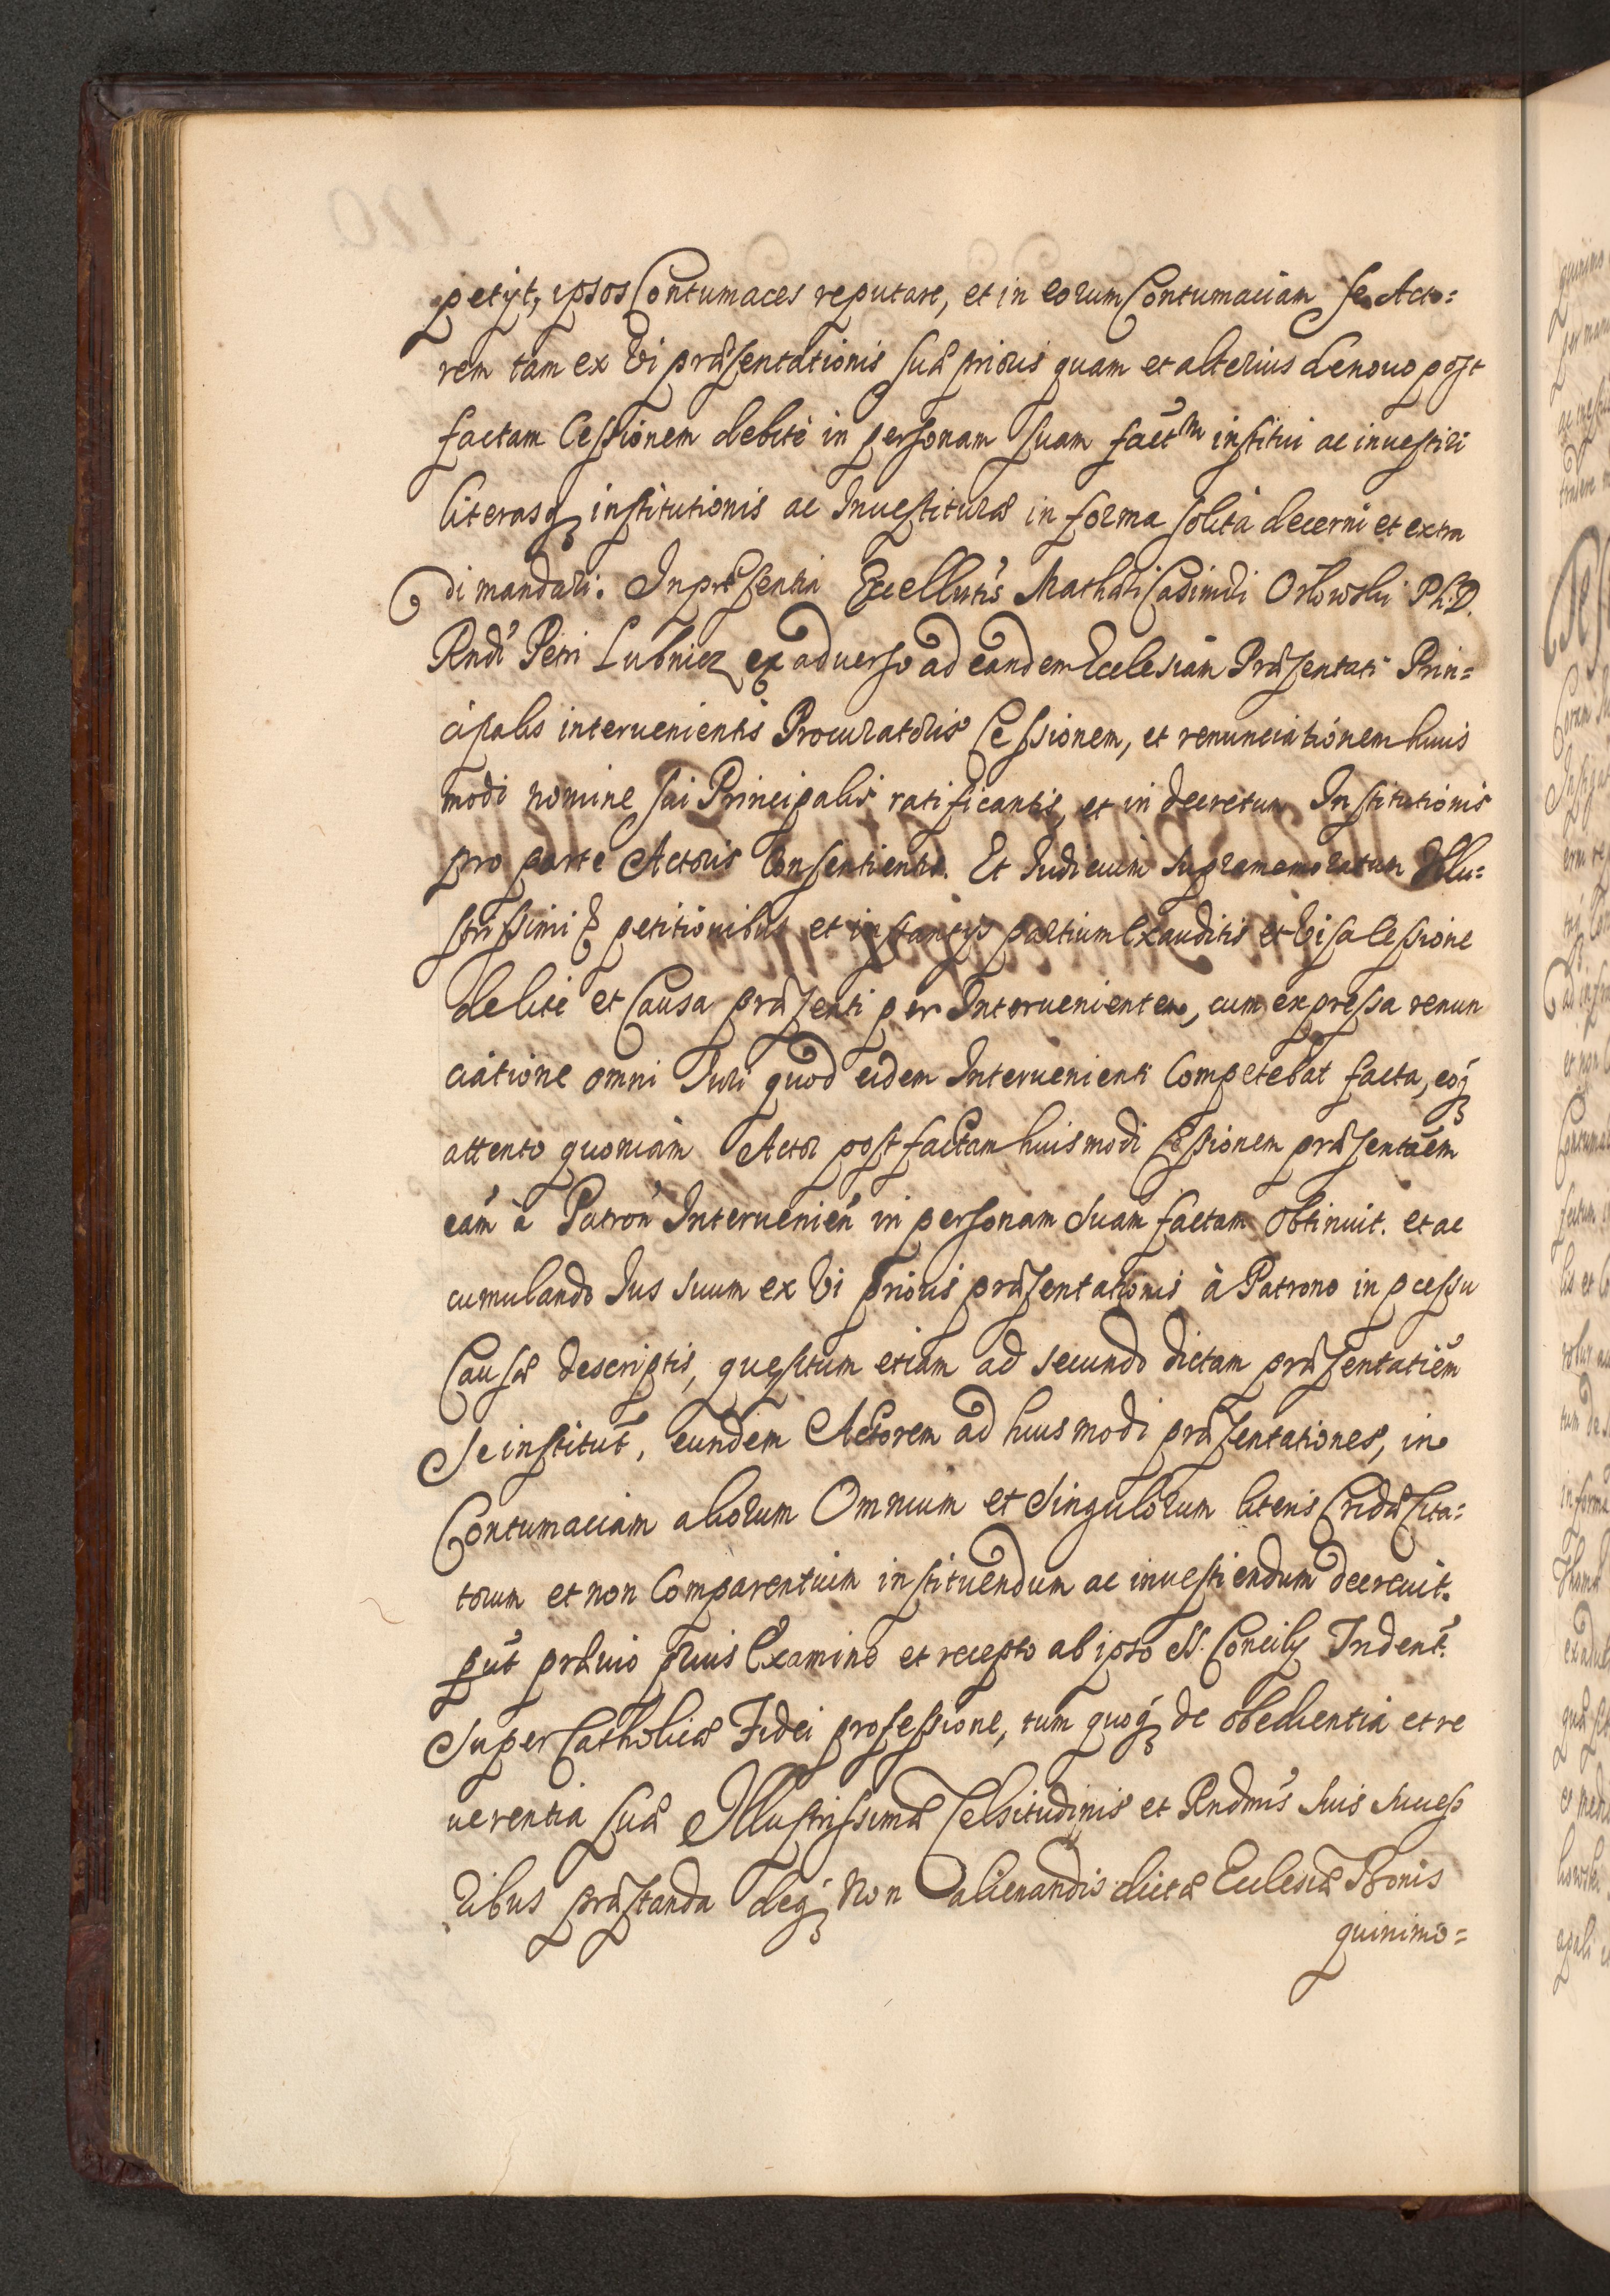 petijt, ipsos Contumaces reputare, et in eorum Contumaciam se Acto=
rem tam ex Vi præsentationis suæ prioris quam et alterius denouo post
factam Cessionem debitè in personam suam fact͞m institui ac inuestiri
literasq; institutionis ac Inuestituræ in forma solita decerni et extra
di mandari. In præsentia Excellntis Mathæi Casimiri Orłowski Ph. D.
Rndi Petri Lubnicz ex aduerso ad eandem Ecclesiam Præsentati Prin=
cipalis interuenientis Procuratoris Cessionem, et renunciationem huius
modi nomine sui Principalis ratificantis, et in decretum Institutionis
pro parte Actoris Consentientis. Et Iudicium supramemoratum Illu=
strissimi & petitionibus et instantijs partium Exauditis et Visa Cessione
debitè et Causa præsenti per Interuenientem, cum expressa renun
ciatione omni Iuri quod eidem Interuenienti Competebat facta, eoq;
attento quoniam Actor post factam huiusmodi Cessionem præsentaem
eam à Patron Interuenien in personam suam factam obtinuit. et ac
cumulando Ius suum ex Vi prioris præsentationis à Patrono in pcessu
Causæ descriptis, quæsitum etiam ad secundo dictam præsentatiem
se institut, eundem Actorem ad huiusmodi præsentationes, in
Contumaciam aliorum Omnium et singulorum literis Cridæ Cita=
torum et non Comparentium instituendum ac inuestiendum decreuit.
put præuio prius Examine et recepto ab ipso S. Concilij Trident.
super Catholicæ Fidei professione, tum quoq; de obedientia et re
uerentia suæ Illustrissimæ Celsitudinis et Rndmis suis success
ribus præstanda deq; non alienandis dictæ Ecclesiæ Bonis
quinimo=